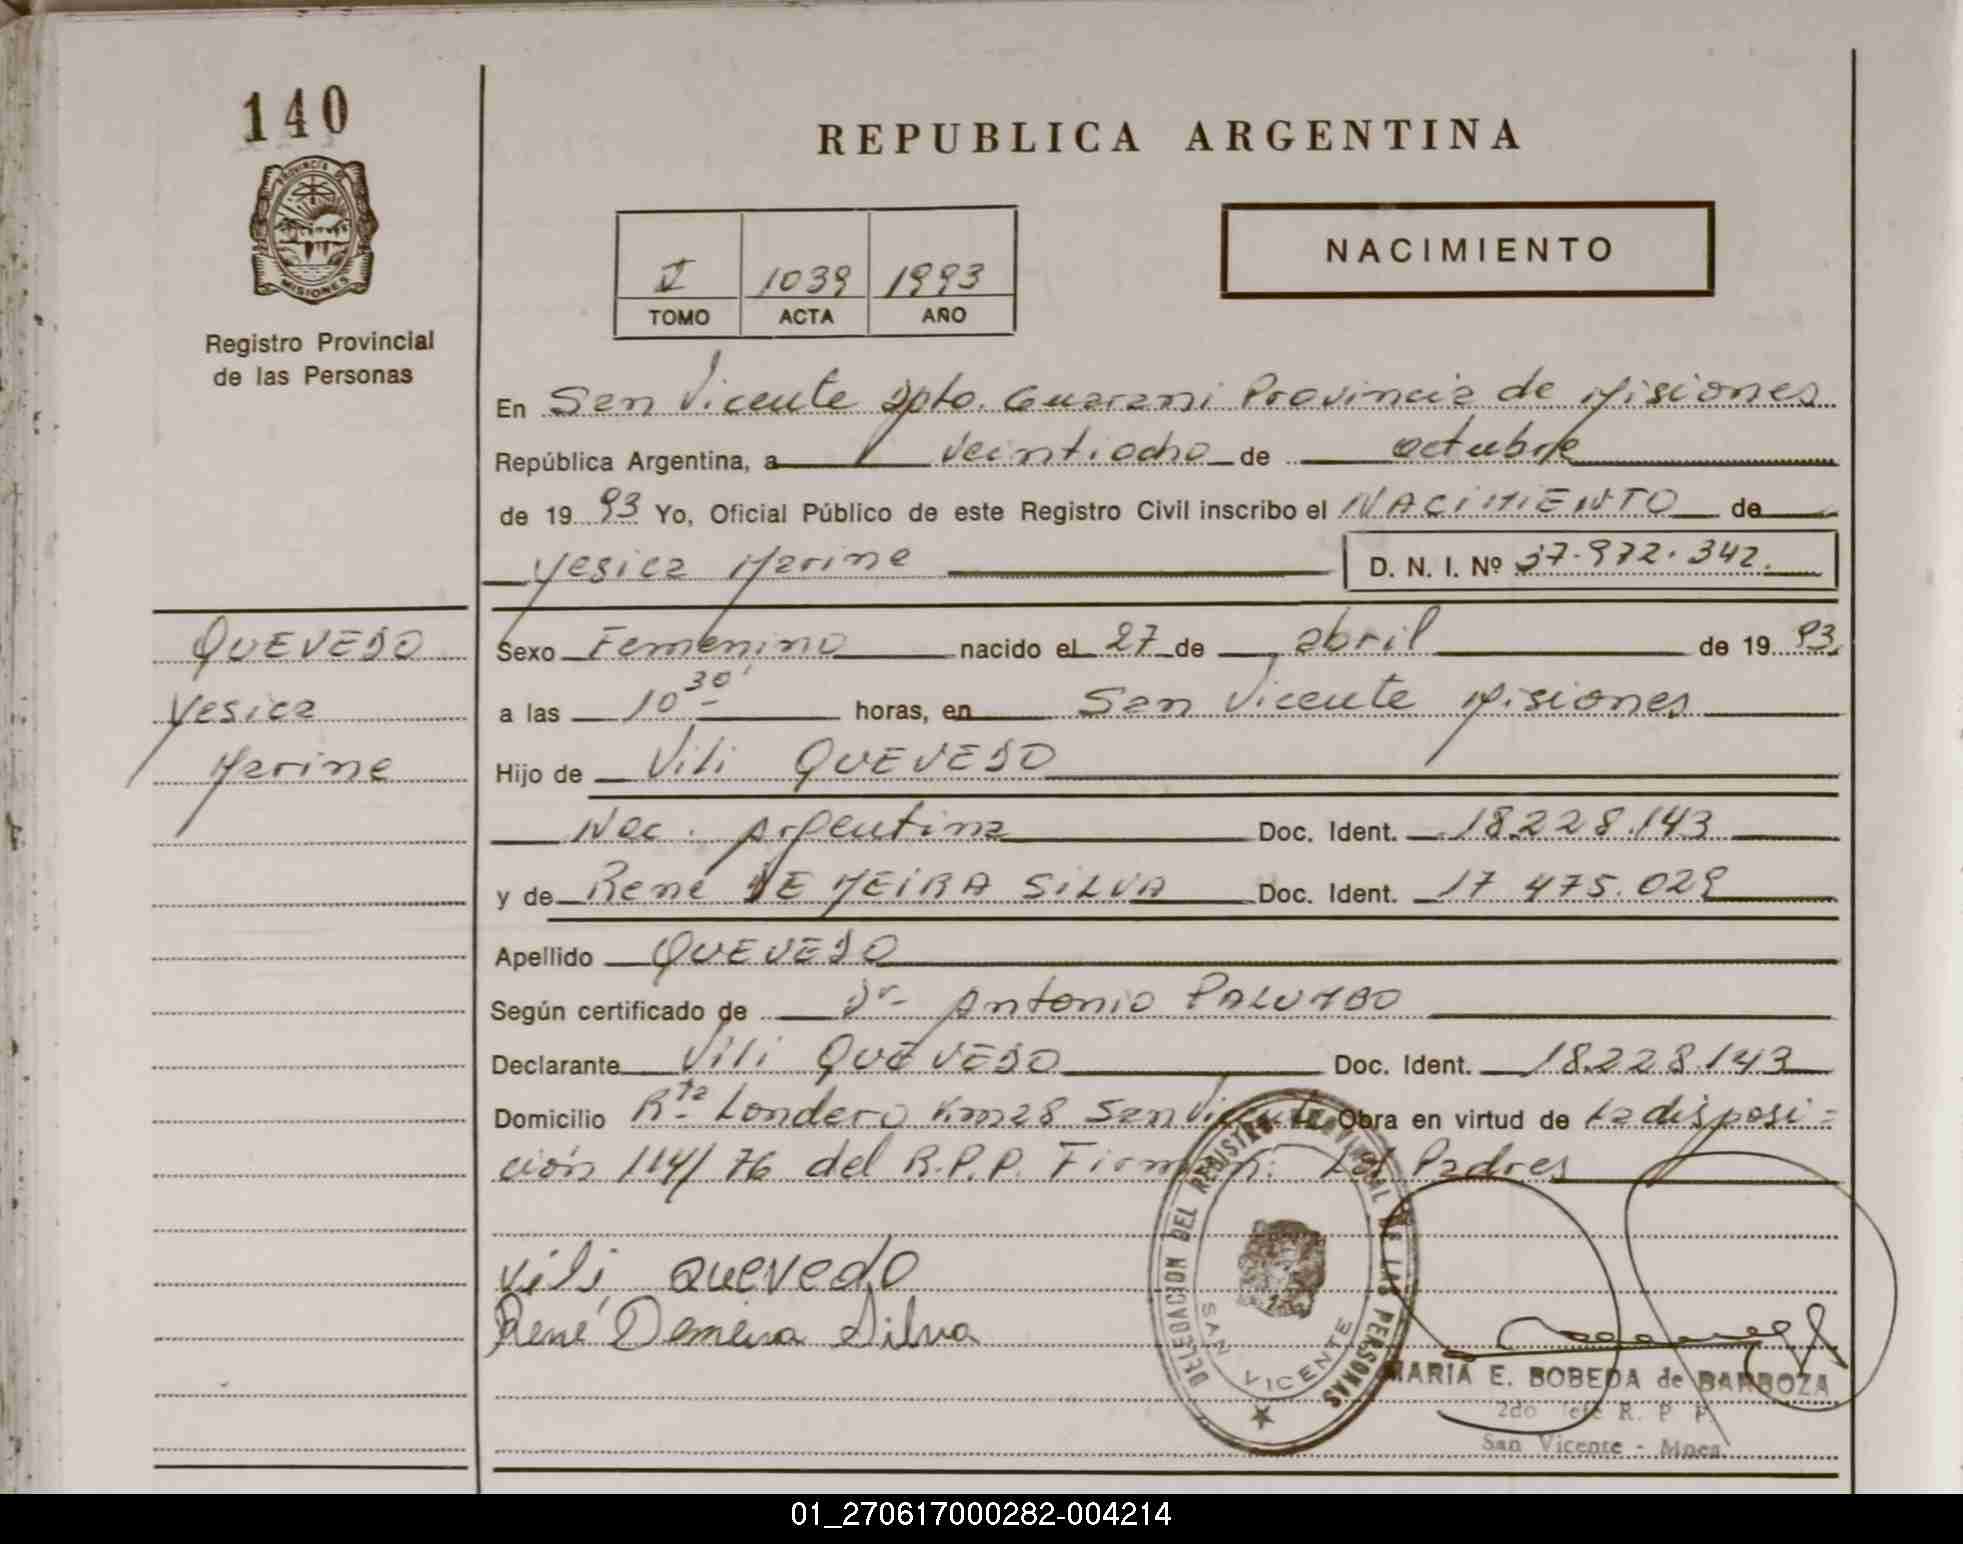 140
PROVINCIA DE
MISIONES
Registro Provincial
de las Personas
REPUBLICA ARGENTINA
NACIMIENTO
1039 1993
TOMO ACTA AÑO
En San Vicente Dpto. Guarani Provincia de Misiones
República Argentina, a veintiocho de octubre
de 19 93 Yo, Oficial Público de este Registro Civil inscribo el NACIMIENTO de
Yesica Marine D. N. I. Nº 37.972.342.
QUEVEDO
Yesica
Marine
Sexo Femenino nacido el 27 de abril de 19 93.
a las 10 30' horas, en San Vicente Misiones
Hijo de Vili QUEVEDO
Nac. Argentina Doc. Ident. 18.228.143
y de René DE MEIRA SILVA Doc. Ident. 17 475.029
Apellido QUEVEDO
Según certificado de Dr. Antonio PALUMBO
Declarante Vili QUEVEDO Doc. Ident. 18.228.143
Domicilio Rta Londero Km 28 San Vicente Obra en virtud de La disposi=
ción 114/76 del R.P.P. Firman: Padres
Vili Quevedo
René Demeira Silva
DELEGACION DEL REGISTRO PROVINCIAL DE LAS PERSONAS
SAN VICENTE
MARIA E. BOBEDA de BARBOZA
2do Jefe R. P. P.
San Vicente - Mnes.
01_270617000282-004214